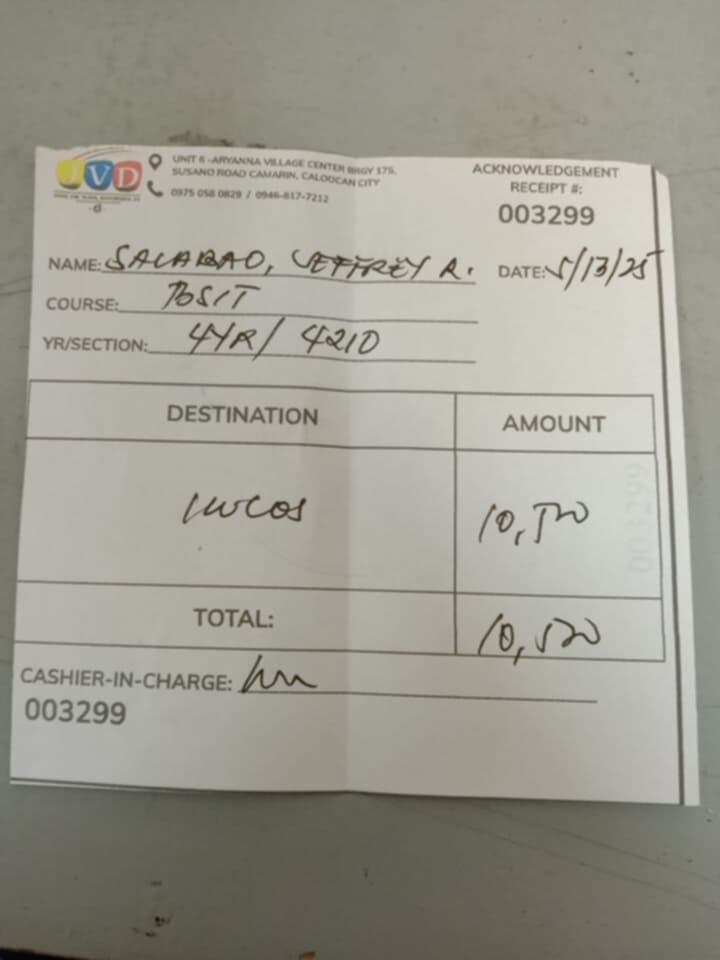 JVD
UNIT 6 -ARYANNA VILLAGE CENTER BRGY 175,
SUSANO ROAD CAMARIN, CALOOCAN CITY
0975 058 0829 / 0946-817-7212
ACKNOWLEDGEMENT
RECEIPT #:
003299
NAME: SALABAO, JEFFREY R. DATE: 5/13/25
COURSE: BSIT
YR/SECTION: 4YR/ 421D
DESTINATION AMOUNT
ILOCOS 10,500
TOTAL: 10,500
CASHIER-IN-CHARGE:
003299
003299